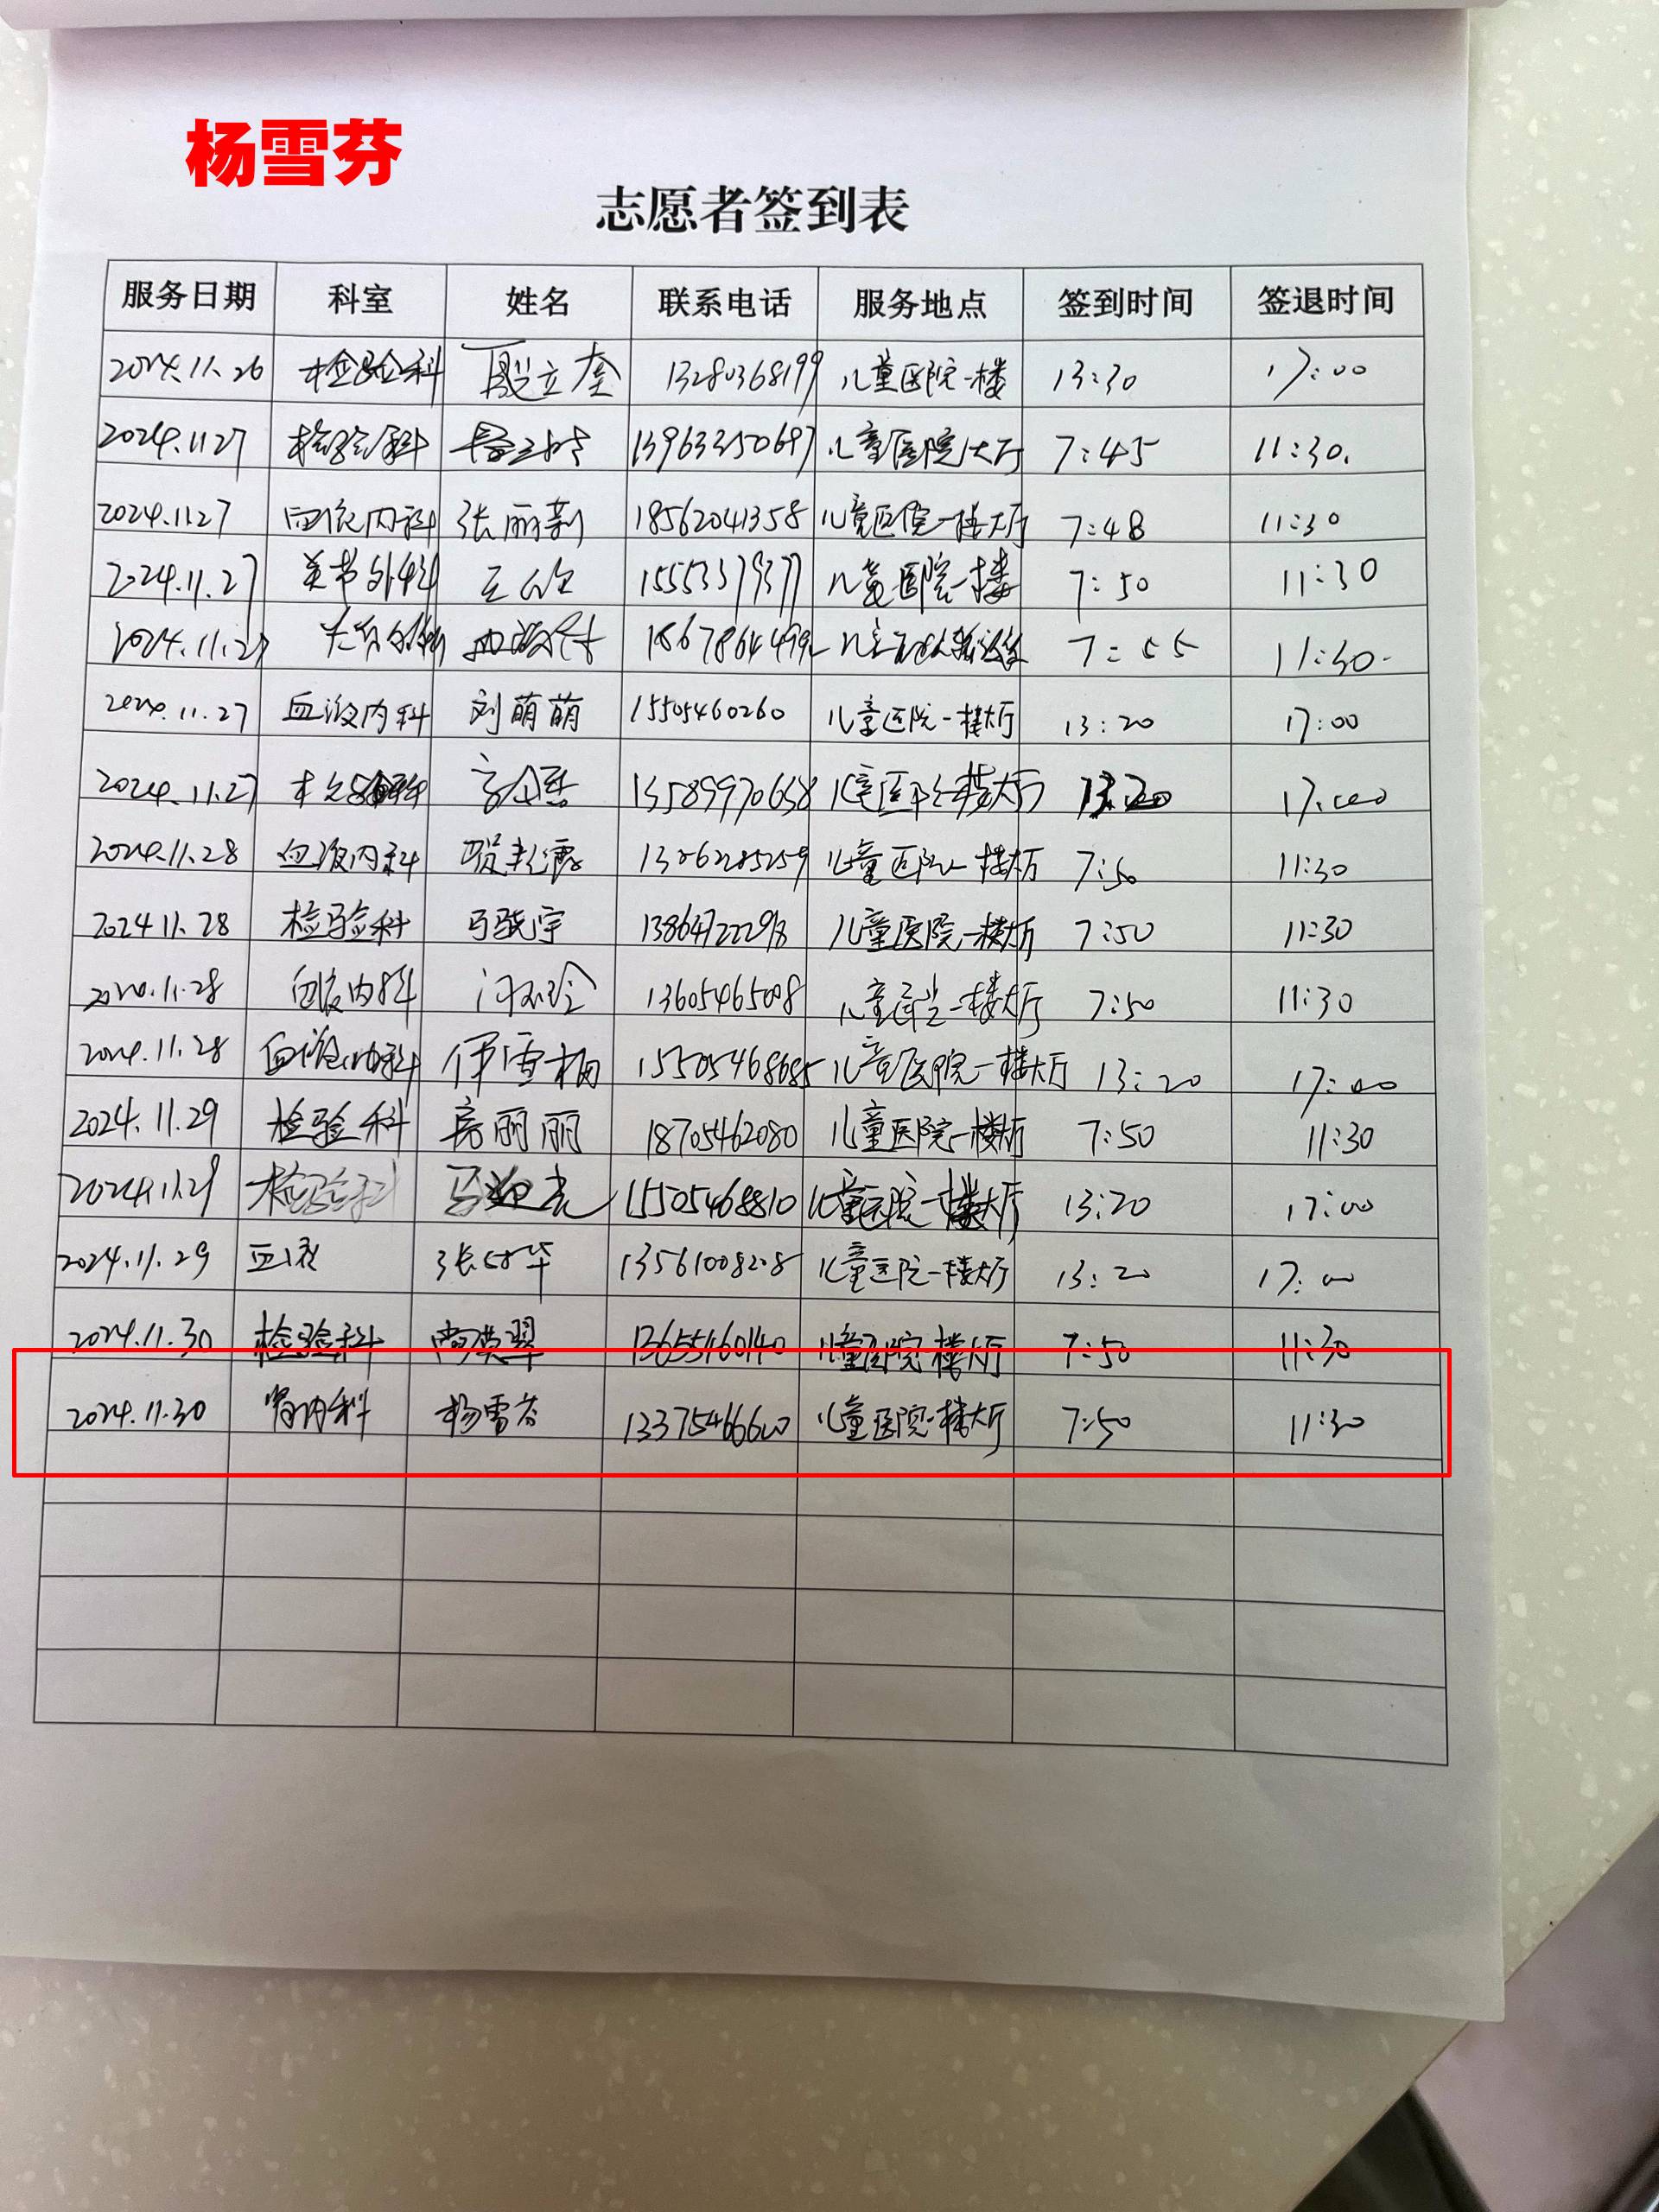 杨雪芬
志愿者签到表
服务日期 科室 姓名 联系电话 服务地点 签到时间 签退时间
2024.11.26 检验科 聂立奎 13280368199 儿童医院一楼 13:30 17:00
2024.11.27 检验科 13963350697 儿童医院大厅 7:45 11:30.
2024.11.27 血液内科 张丽新 18562041358 儿童医院一楼大厅 7:48 11:30
2024.11.27 关节外科 15553379377 儿童医院一楼 7:50 11:30
2024.11.27 7:55 11:30
2024.11.27 血液内科 刘萌萌 15505460260 儿童医院一楼大厅 13:20 17:00
2024.11.27 13589970638 儿童医院一楼大厅 13:20 17:00
2024.11.28 血液内科 13062285259 儿童医院一楼大厅 7:50 11:30
2024 11.28 检验科 马骁宇 儿童医院一楼大厅 7:50 11:30
2024.11.28 血液内科 13605465008 儿童医院一楼大厅 7:50 11:30
2024.11.28 血液内科 伊雪梅 15505468685 儿童医院一楼大厅 13:20 17:00
2024.11.29 检验科 房丽丽 18705462080 儿童医院一楼大厅 7:50 11:30
2024.11.29 检验科 15505468810 儿童医院一楼大厅 13:20 17:00
2024.11.29 血液 13561008208 儿童医院一楼大厅 13:20 17:00
2024.11.30 检验科 尚荣翠 13655460140 儿童医院一楼大厅 7:50 11:30
2024.11.30 肾内科 杨雪芬 13375466600 儿童医院一楼大厅 7:50 11:30